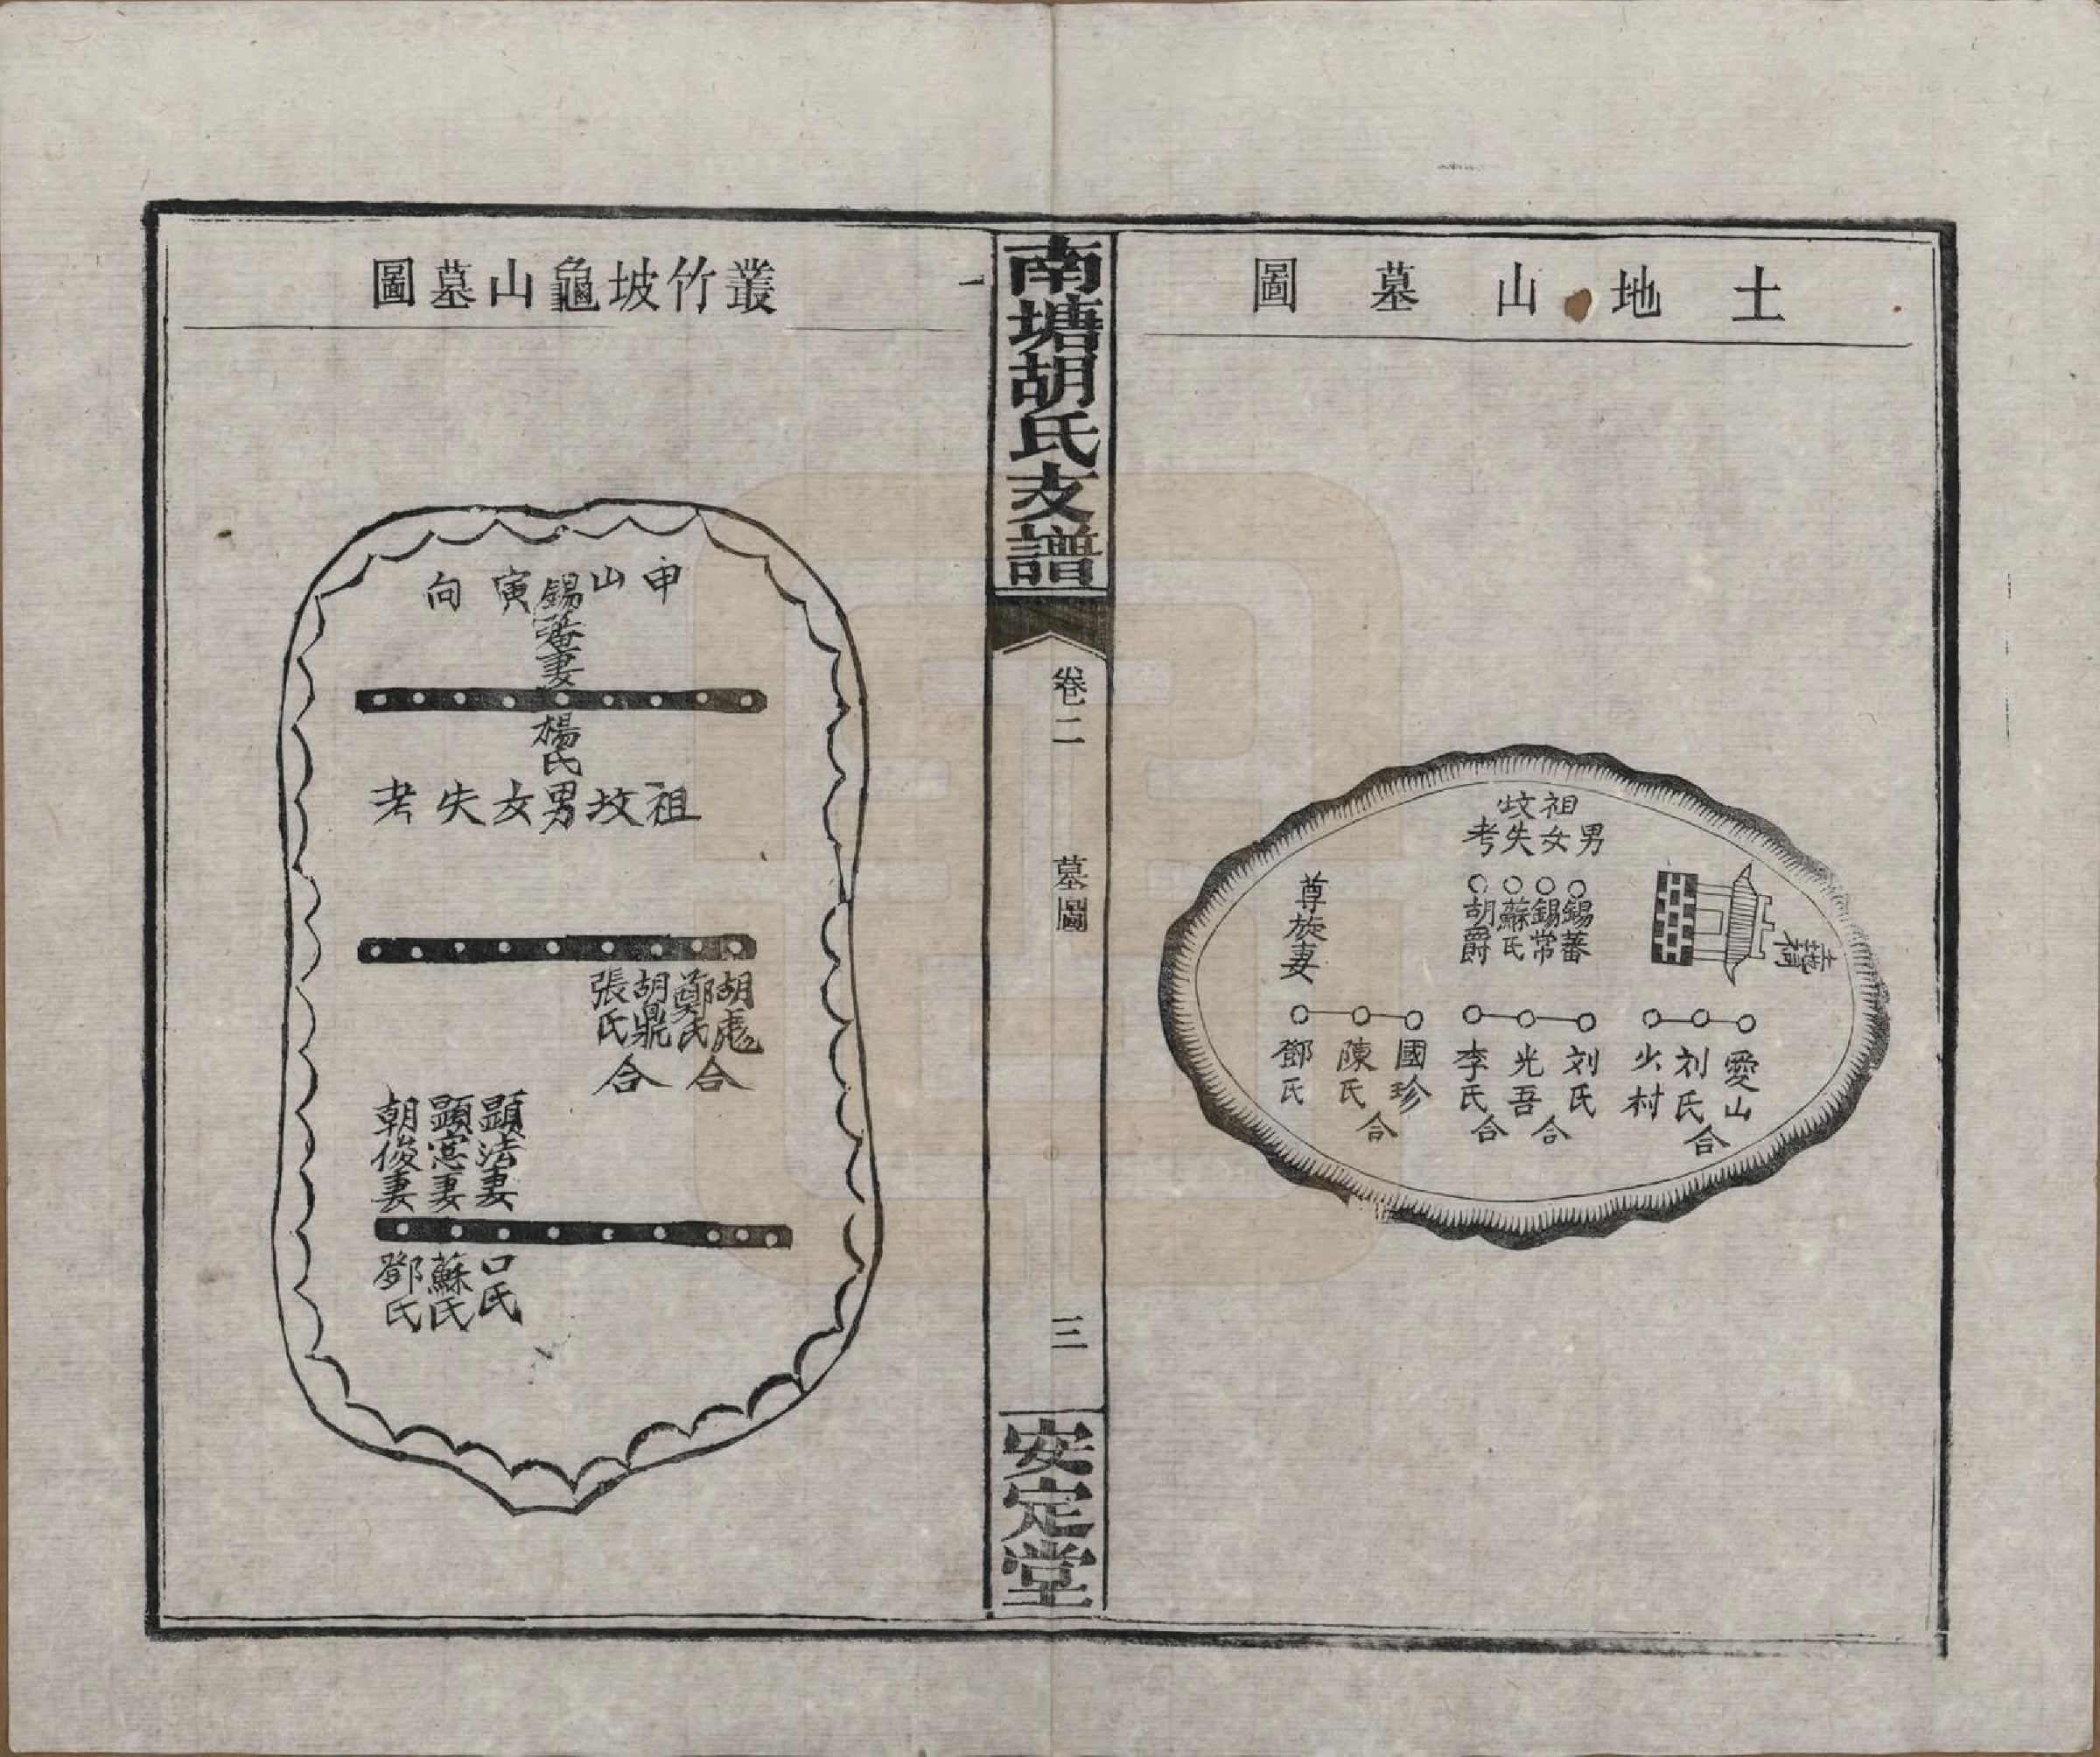 土地山墓圖
祖坟
男女失考
錫蕃
錫常
蘇氏
胡爵
尊族妻
愛山
刘氏
合
火村
刘氏
光吾
合
李氏
合
國珍
合
陳氏
鄧氏
南塘胡氏支譜
卷二
墓圖
三
安定堂
叢竹坡龜山墓圖
申山寅向
錫蕃妻
楊氏
祖坟男女失考
胡彪
鄭氏
合
胡鼎
張氏
合
顕法妻
顕憲妻
朝俊妻
口氏
蘇氏
鄧氏